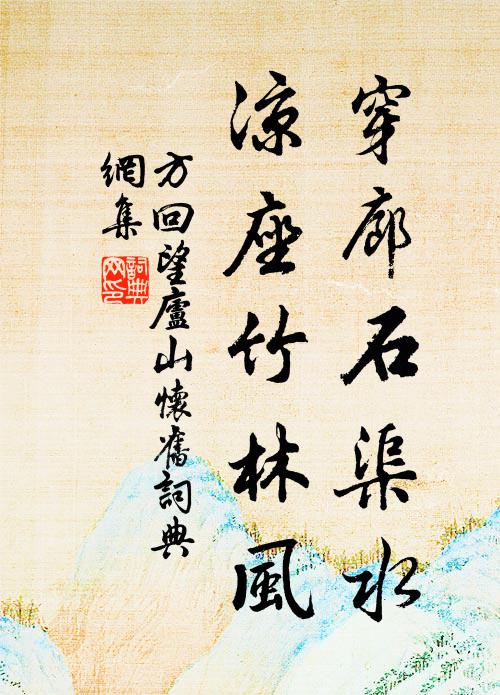 穿廊石渠水
涼座竹林風
方回望廬山懷舊詞典
網集
詞典網印